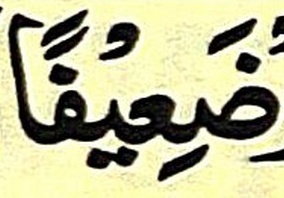 ضَعِيْفًا